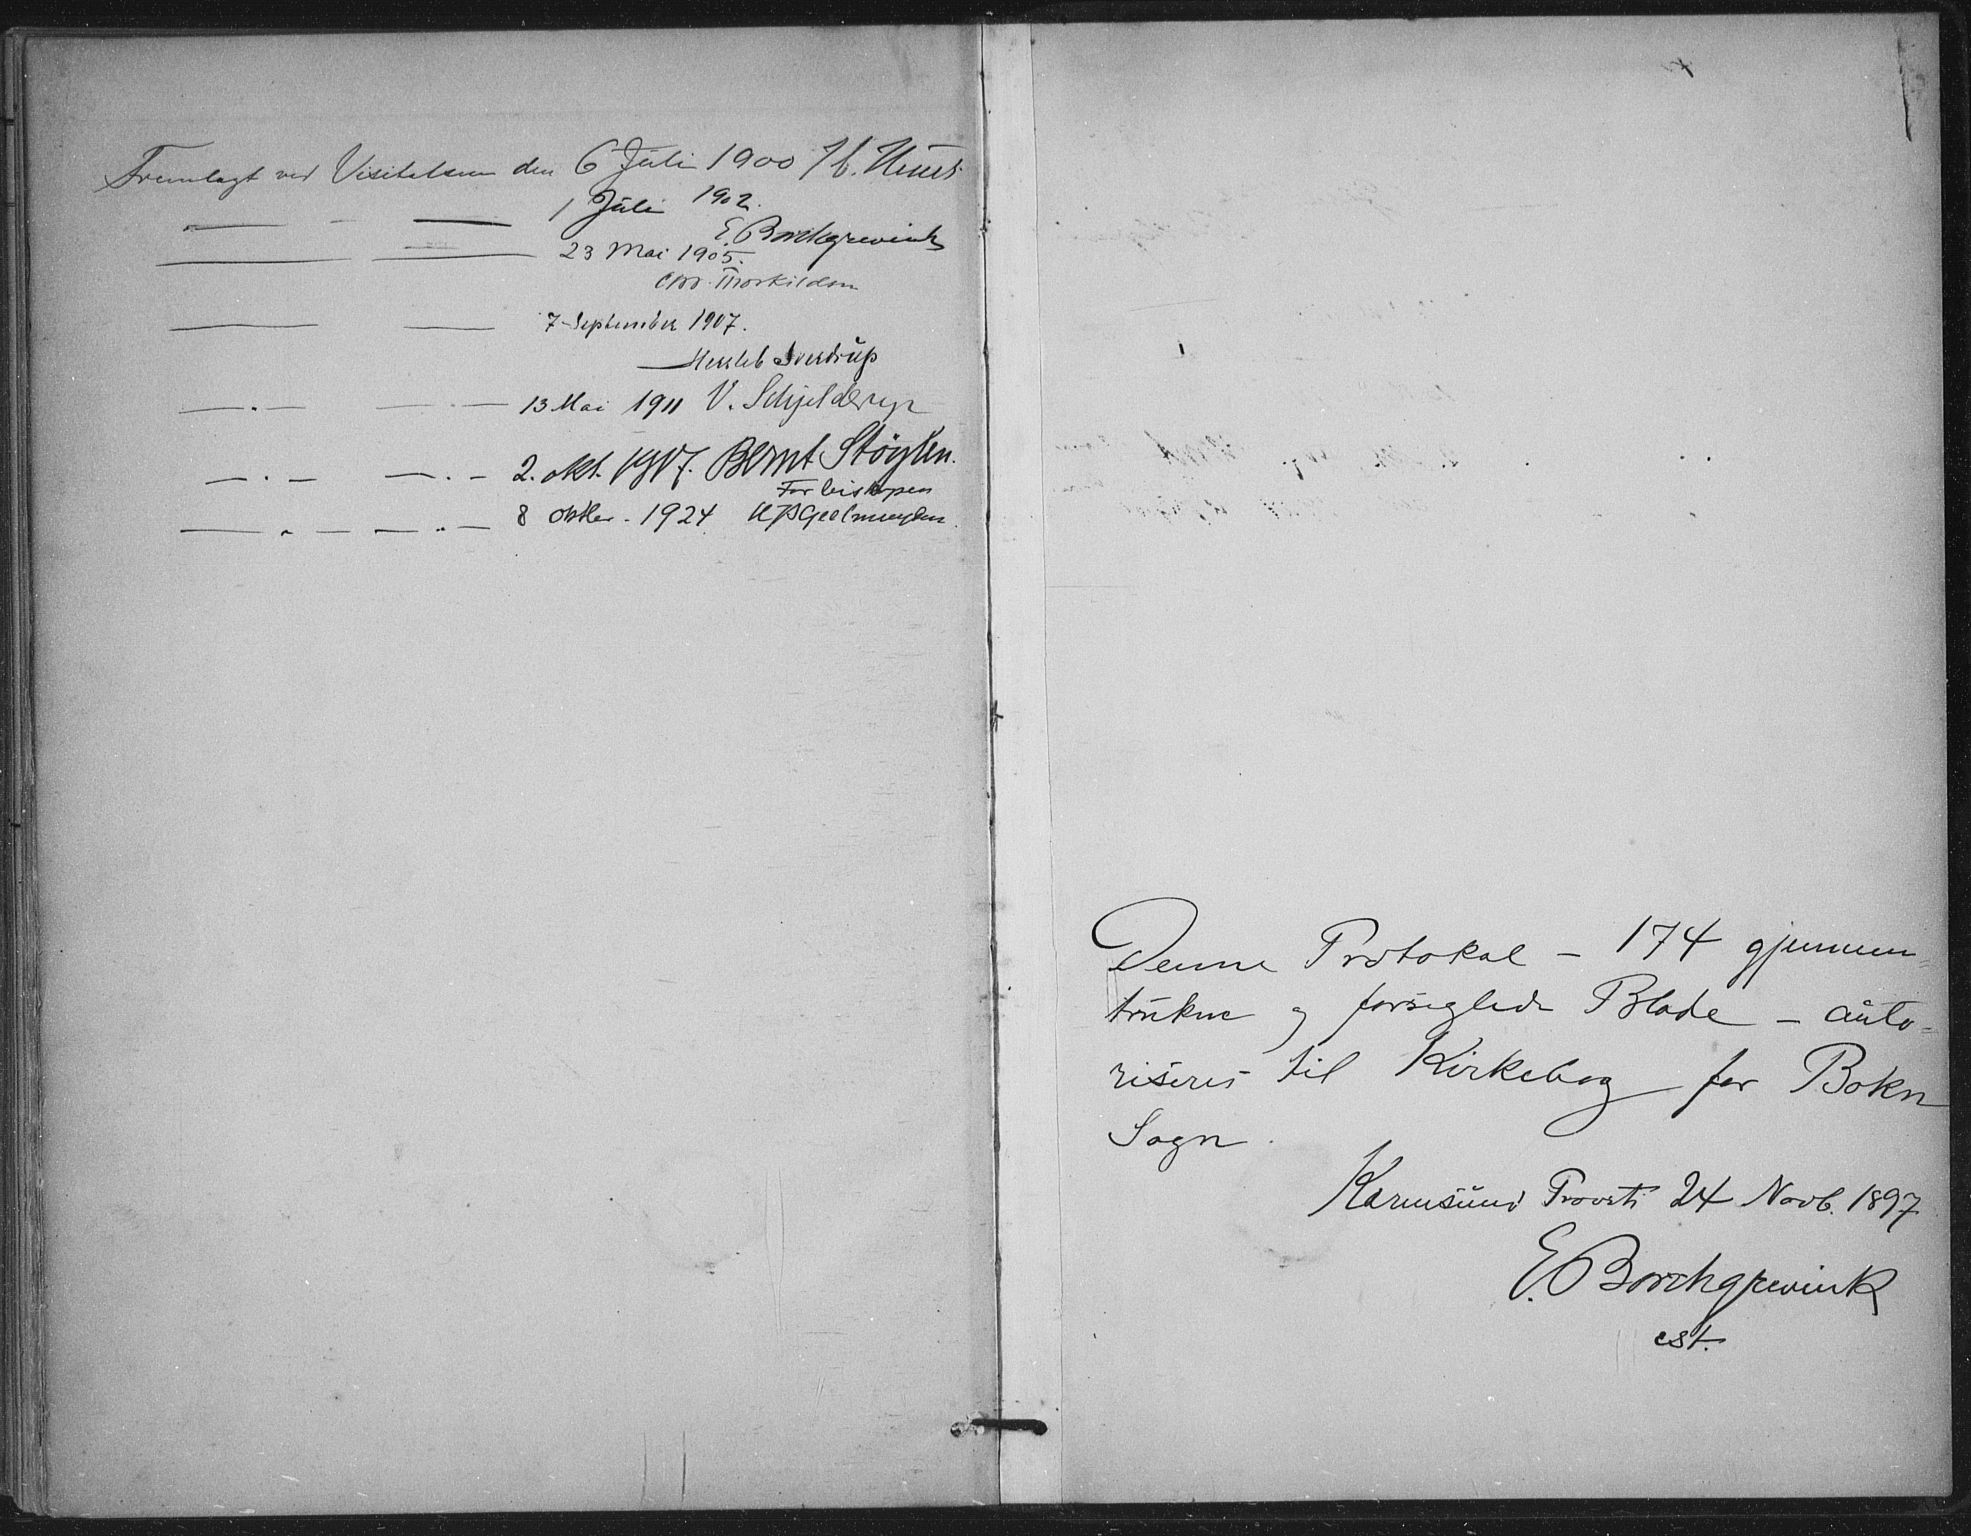 Fremlagt ved Visitatsen den 6 Juli 1900
— — — 1 Juli 1902.
E. Borchgrevink
— — 23 Mai 1905.
Thorkildsen
— — 7 September 1907.
Hersleb Sverdrup
— . — — . — 13 Mai 1911 V. Schjelderup
— . — — . — 2. okt. 1917. Bernt Støylen.
For biskopen
— „ — — „ — 8 oktbr. 1924 Geelmuyden
Denne Protokol – 174 gjennem-
trukne og forseglede Blade – auto-
riseres til Kirkebog for Bokn
Sogn.
Karmsund Provsti 24 Novb. 1897
E. Borchgrevink
cst.